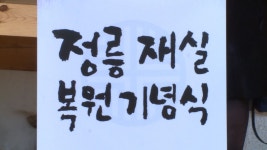 정릉 재실
복원 기념식